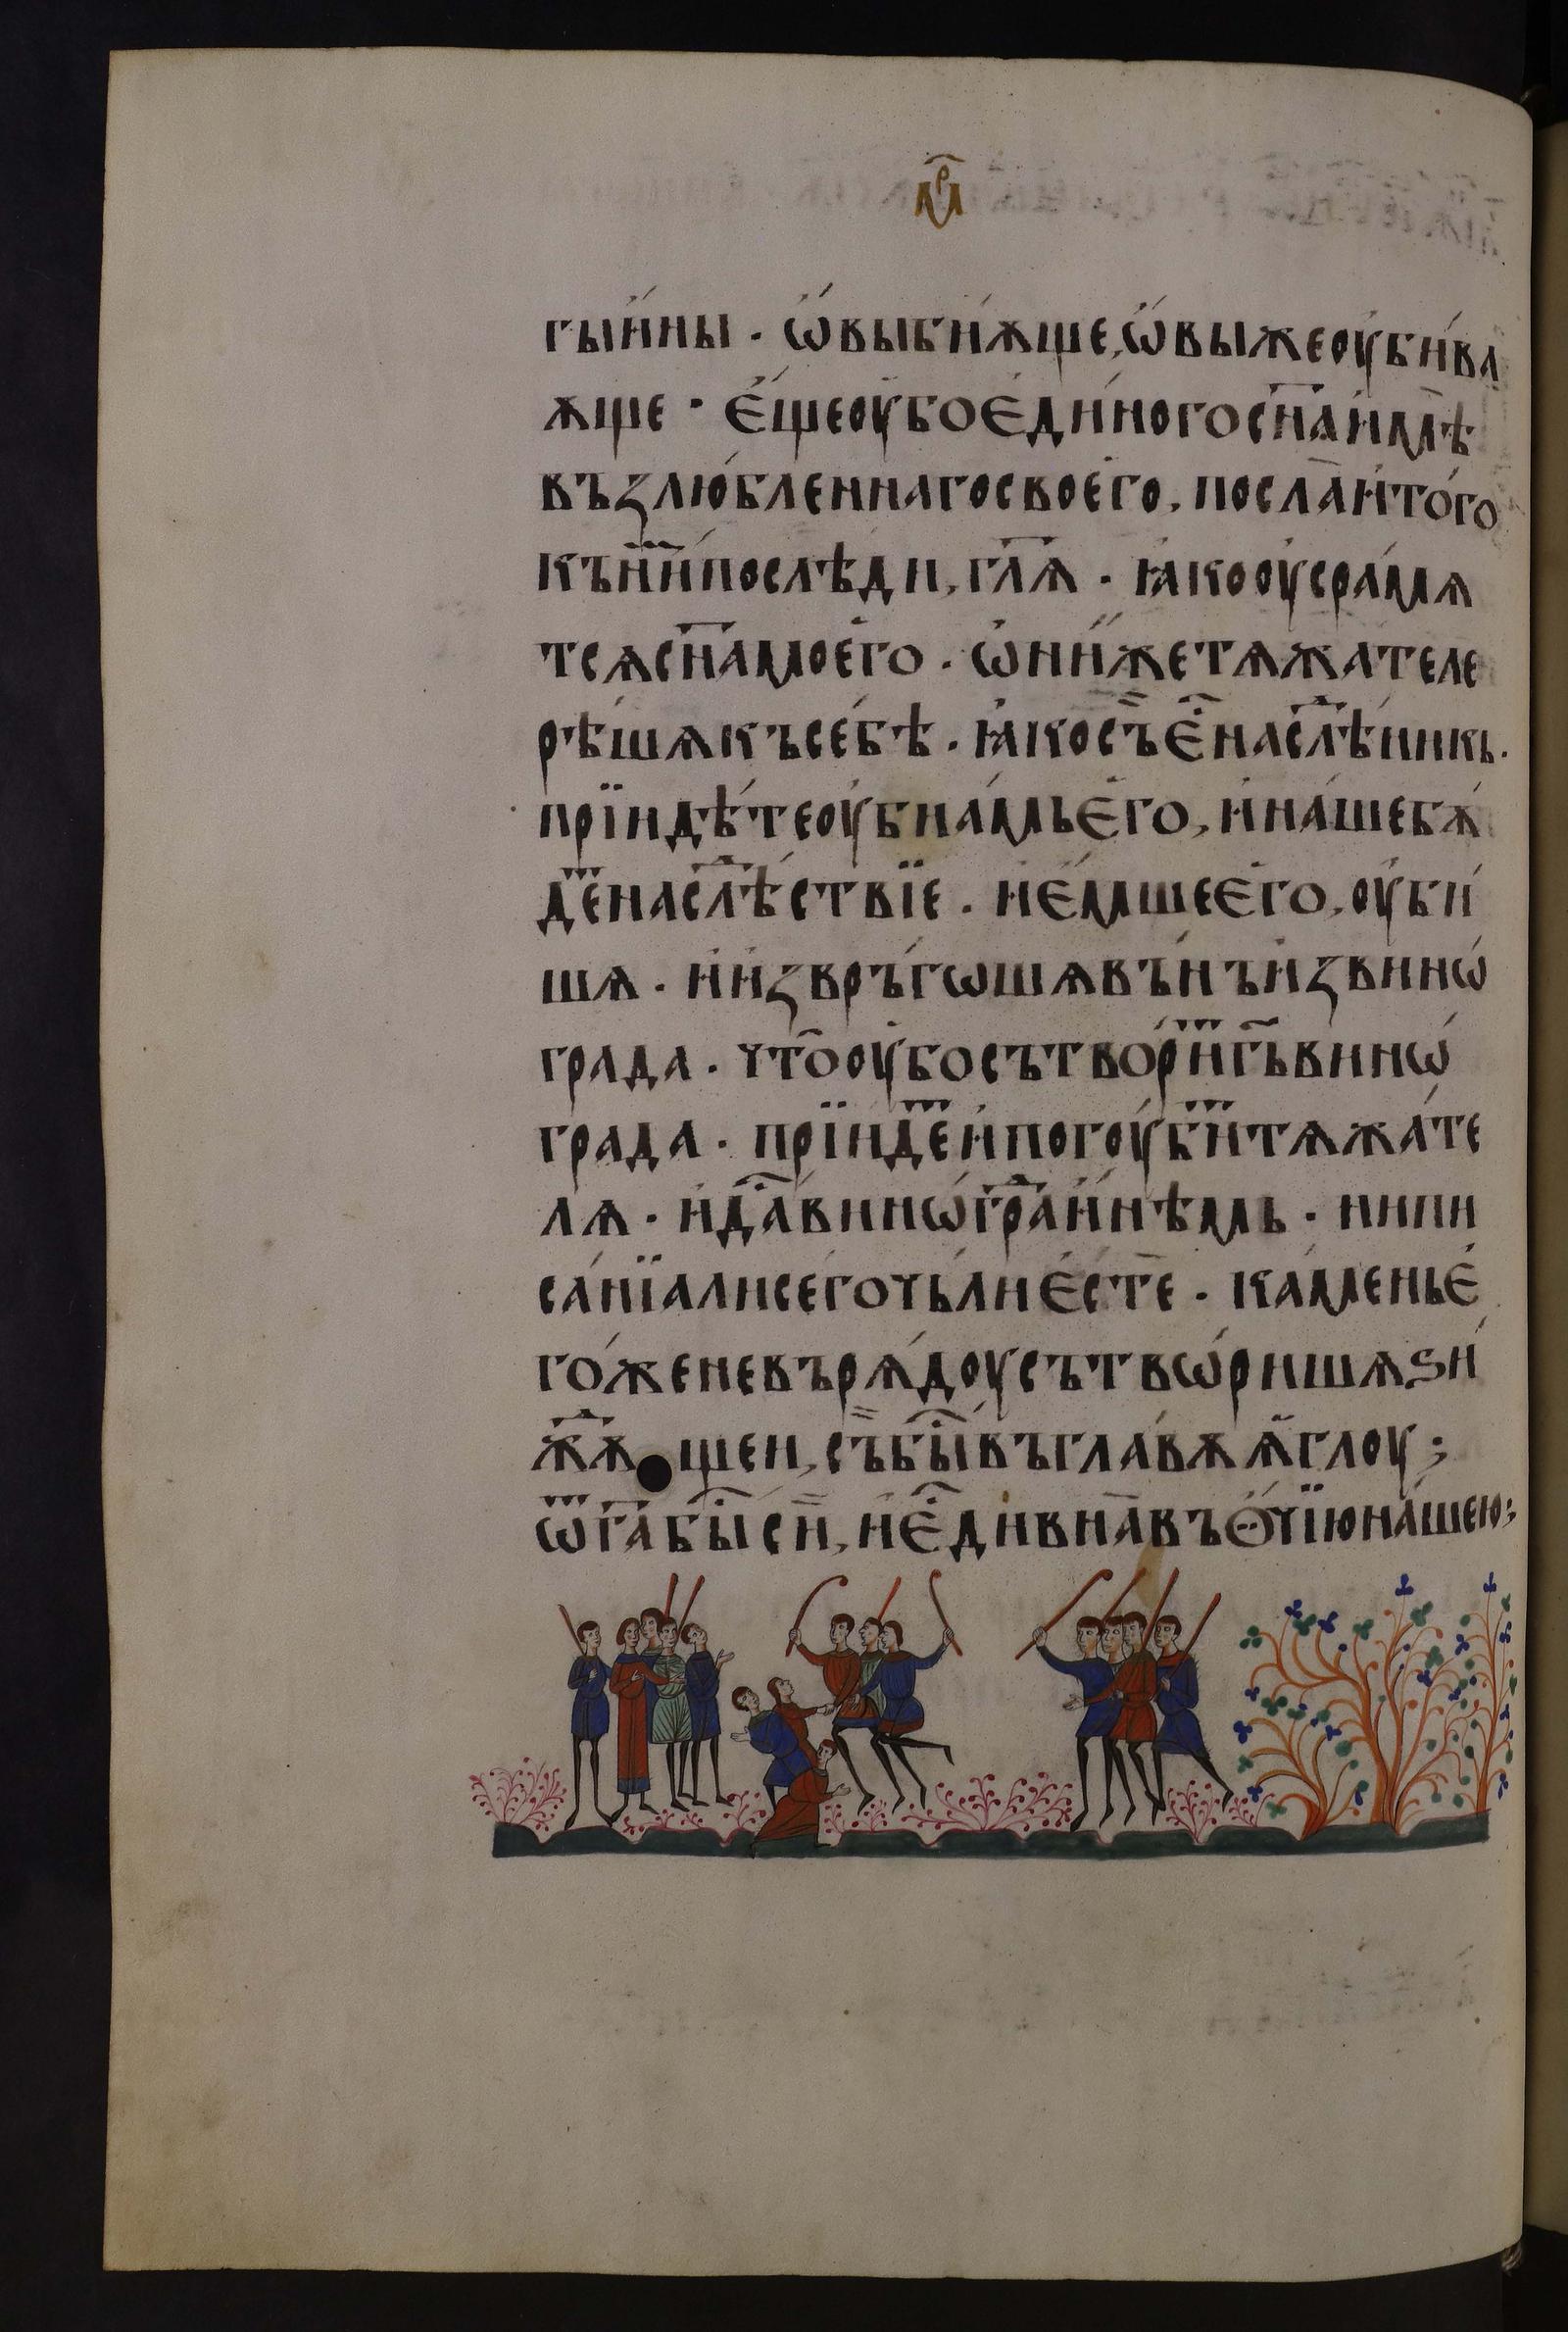 мр҃
гы́ины · ѡ҆́выби́ѫще, ѡ҆́выжеоу҆би́ва
ѫще · е҆́щеоу҆боеди́ногосн҃аи҆мѣ̀
възлю́бленнагосвоего̀, посла̀и҆то́го
къни̑м̑послѣди, гл҃ѧ · ꙗ҆кооу҆сра́мѧ
тсѧсн҃амоего̀ · ѡ҆ни́жетѧжа́теле
рѣ́шѧкъсе́бѣ · ꙗ҆косъ̏е҆̑наслѣ̑никь ·
прїидѣ́теоу҆биа́мьего̀, и҆на́шебѫ́
де̑наслѣ̑́ствїе · и҆е҆́мшеего̀, оу҆би́
шѧ · и҆и҆звръ́гѡшѧвъ́нъи҆звинѡ́
града · что̑оу҆босътво́ри̑гь̑винѡ́
града · прїиде̑и҆погоу҆би̑тѧжа́те
лѧ · и҆да̑́винѡ́гра̑и҆нѣмь · нипи
са́нїалисегочьли́е҆стѐ · ка́меньѐ
го́женевърѧ́доусътвѡ́ришѧѕи́
жѫ̑ щеи, съ̏бы̑въглавѫ̀ѫ҆́глоу ;
ѿга̑бы̑сѝ, и҆е҆̑ди́вна̀въѻ҆́чїюна́шею ;